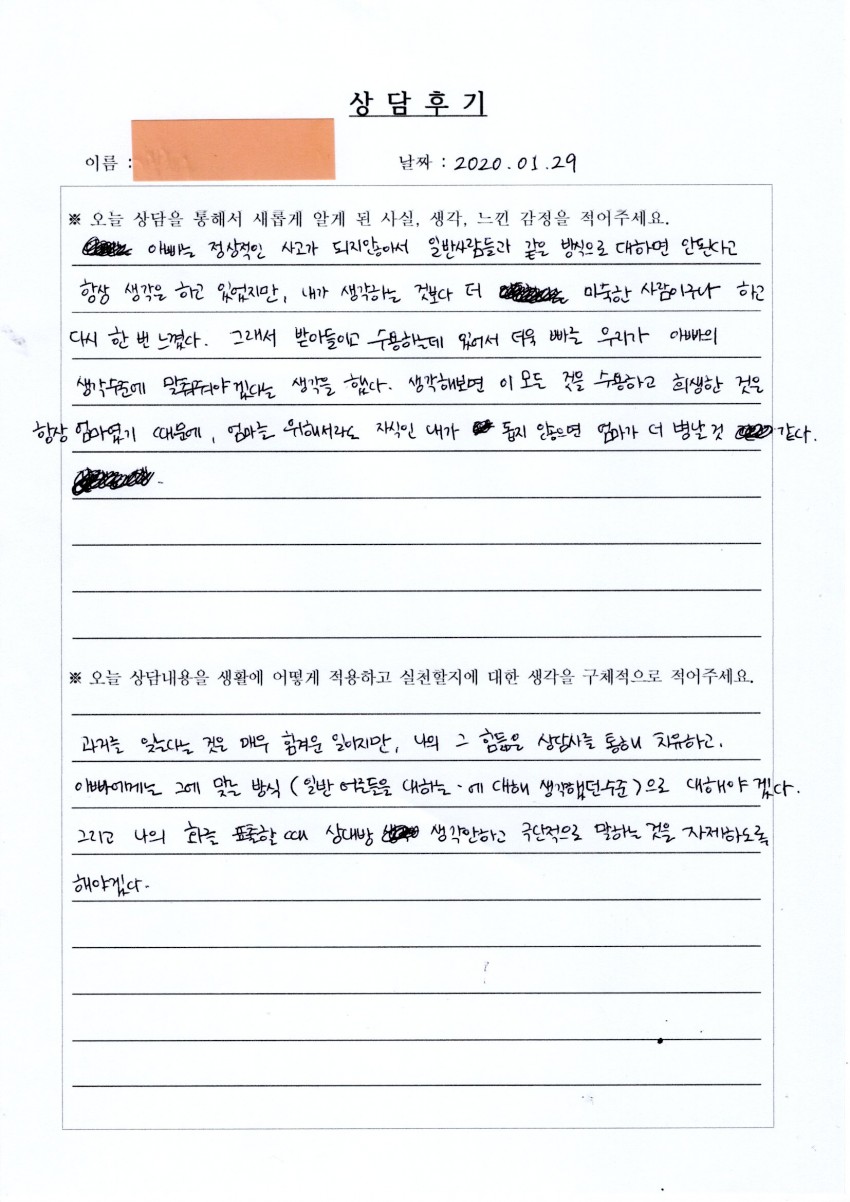 상 담 후 기
이름 :
날짜 : 2020.01.29
※ 오늘 상담을 통해서 새롭게 알게 된 사실, 생각, 느낀 감정을 적어주세요.
아빠는 정상적인 사고가 되지않아서 일반사람들과 같은 방식으로 대하면 안된다고
항상 생각을 하고 있었지만, 내가 생각하는 것보다 더 미숙한 사람이구나 하고
다시 한 번 느꼈다. 그래서 받아들이고 수용하는데 있어서 더욱 빠른 우리가 아빠의
생각수준에 맞춰줘야겠다는 생각을 했다. 생각해보면 이 모든 것을 수용하고 희생한 것은
항상 엄마였기 때문에, 엄마를 위해서라도 자식인 내가 돕지 않으면 엄마가 더 병날 것 같다.
※ 오늘 상담내용을 생활에 어떻게 적용하고 실천할지에 대한 생각을 구체적으로 적어주세요.
과거를 잊는다는 것은 매우 힘겨운 일이지만, 나의 그 힘듦은 상담사를 통해 치유하고.
아빠에게는 그에 맞는 방식 (일반 어른들을 대하는·에 대해 생각했던수준)으로 대해야겠다.
그리고 나의 화를 표출할 때 상대방 생각안하고 극단적으로 말하는 것을 자제하도록
해야겠다.